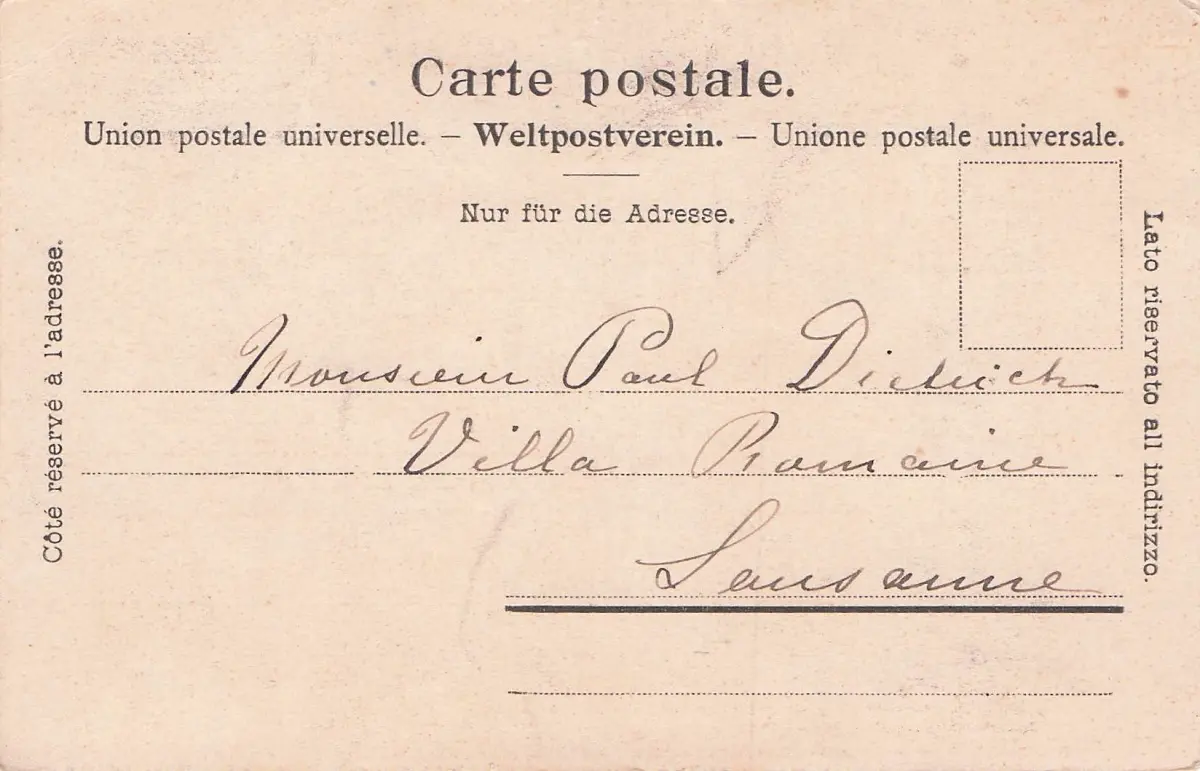 Carte postale.
Union postale universelle. – Weltpostverein. – Unione postale universale.
Nur für die Adresse.
Côté réservé à l'adresse.
Lato riservato all indirizzo.
Monsieur Paul Dietrich
Villa Romaine
Lausanne